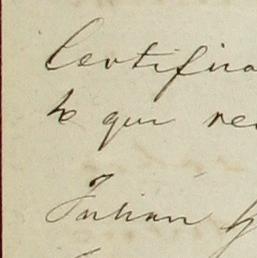 Certifica
to que re
Julian